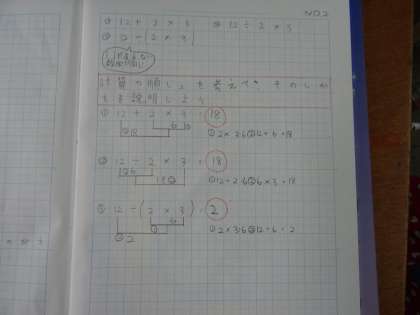 NO.2
① 12 + 2 × 3 ② 12 ÷ 2 × 3
③ 12 ÷ (2 × 3)
計算の順じょを考えて、そのしか
たを説明しよう
① 12 + 2 × 3 = 18
① 6
② 18
① 2×3=6 ② 12+6=18
② 12 ÷ 2 × 3 = 18
① 6
18 ②
① 12÷2=6 ② 6×3=18
③ 12 ÷ (2 × 3) = 2
6
①
② 2
① 2×3=6 ② 12÷6=2